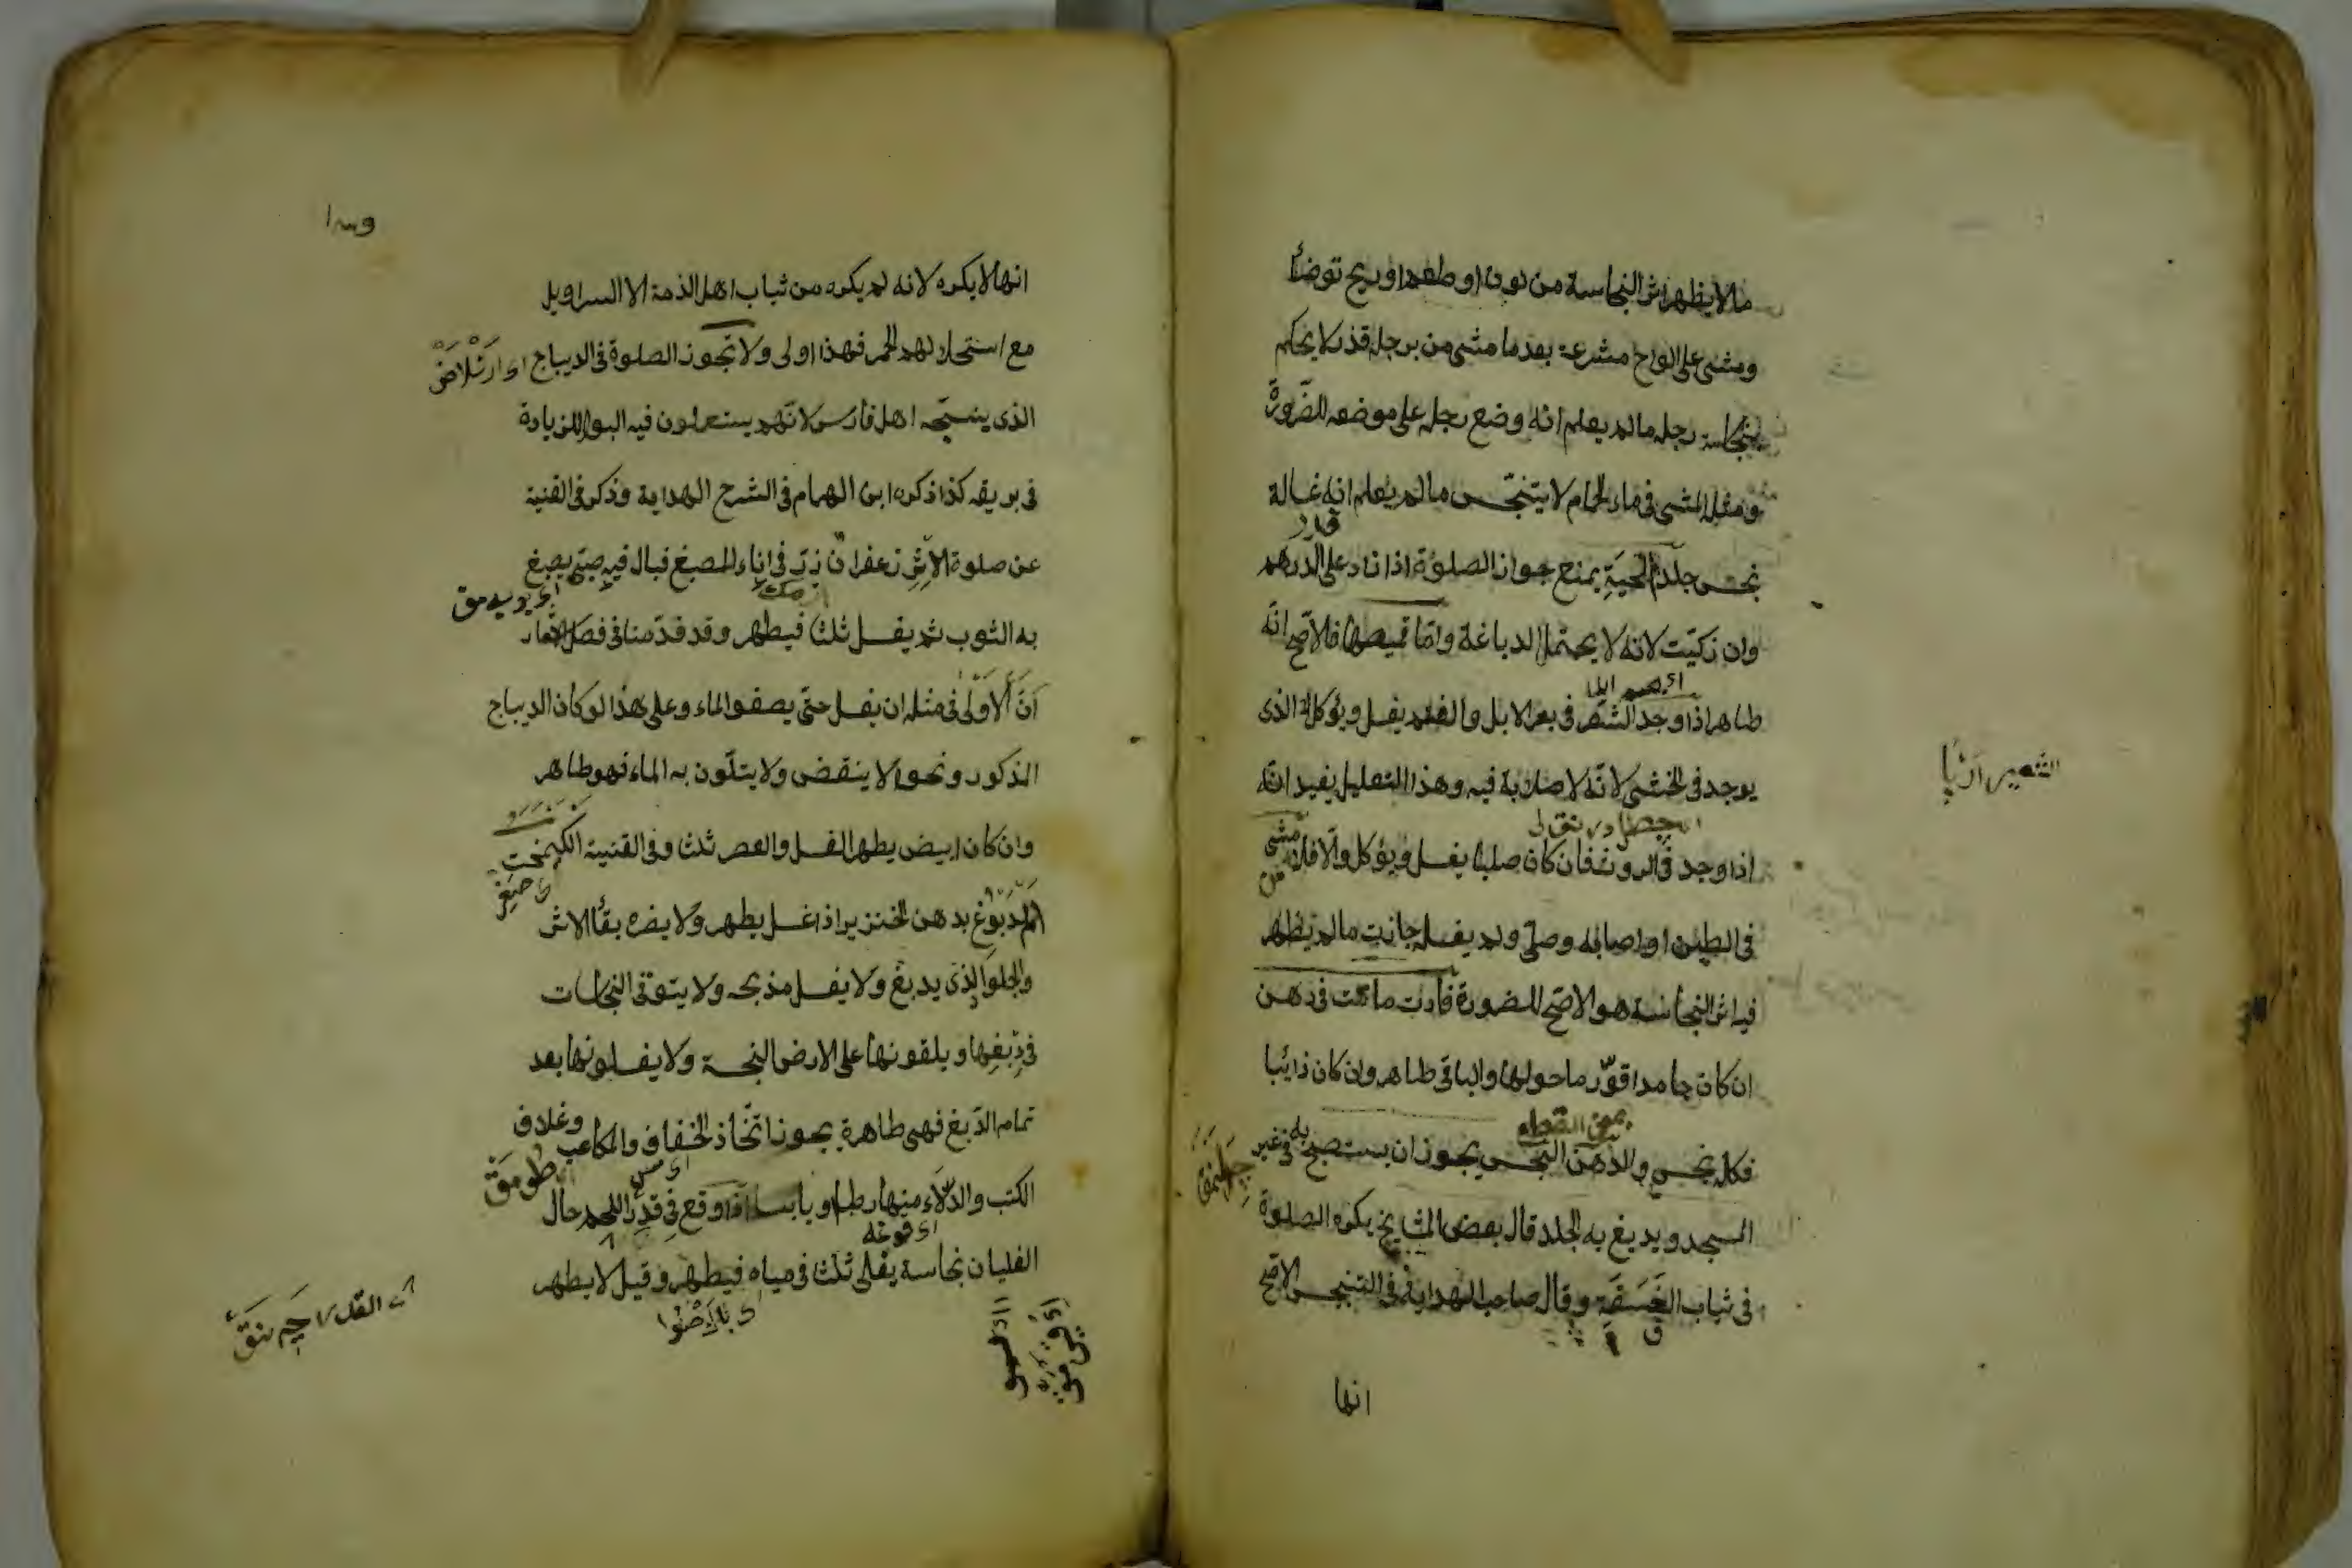 ما لا يظهر اثر النجاسة من لون او طعم او ريح توضأ
ومشى على الواح مشرعة بعد ما مشى من برجله قذر لا يحكم
بنجاسة رجله ما لم يعلم انه وضع رجله على موضعه للضرورة
ومثله المشى فى ماء الحمام لا يتنجس ما لم يعلم انه غسالة
قدر
نجس جلد الحية يمنع جواز الصلوة اذا زاد على الدرهم
وان زكيت لانه لا يحتمل الدباغة واما قميصها فالاصح انه
طاهر اذا وجد الشعير فى بعر الابل والغنم يغسل ويؤكل الذى
الشعير
يوجد فى الخثى لانه لا صلابة فيه وهذا التعليل يفيد انه
اذا وجد فى الروث فان كان صلبا يغسل ويؤكل والا فلا مشى
فى الطين او اصابه وصلى ولم يغسله جازت ما لم يظهر
فيه اثر النجاسة هو الاصح للضرورة فأرة ماتت فى دهن
ان كان جامدا قور ما حولها والباقى طاهر وان كان ذائبا
فكله نجس والدهن النجس يجوز ان يستصبح به فى غير
المسجد ويدبغ به الجلد قال بعض المشايخ يكره الصلوة
فى ثياب الفسقة وقال صاحب الهداية فى التنجيس الاصح
انها
انها لا يكره لانه لم يكره من ثياب اهل الذمة الا السراويل
مع استحلالهم الخمر فهذا اولى ولا تجوز الصلوة فى الديباج
الذى ينسجه اهل فارس لانهم يستعملون فيه البول للزيادة
فى بريقه كذا ذكره ابن الهمام فى الشرح الهداية وذكر فى القنية
عن صلوة الاثر زعفران نزت فى اناء للصبغ فبال فيه صبى يصبغ
به الثوب ثم يغسل ثلث فيطهر وقد قدمنا فى فصل
ان الاولى فى مثله ان يغسل حتى يصفو الماء وعلى هذا لو كان الديباج
المذكور ونحوه لا ينقض ولا يتلون به الماء فهو طاهر
وان كان ابيض يطهر الغسل والعصر ثلث وفى القنية الكيمخت
المدبوغ بدهن الخنزير اذا غسل يطهر ولا يضره بقأ الاثر
والجلود الذى يدبغ ولا يغسل مذبحه ولا يتوقى النجاسات
فى دبغها ويلقونها على الارض النجسة ولا يغسلونها بعد
تمام الدبغ فهى طاهرة يجوز اتخاذ الخفاف والمكاعب وغلاف
الكتب والدلاء منها رطبا او يابسا اذا وقع فى قدر اللحم حال
الغليان نجاسة يغلى ثلث فى مياه فيطهر وقيل لا يطهر